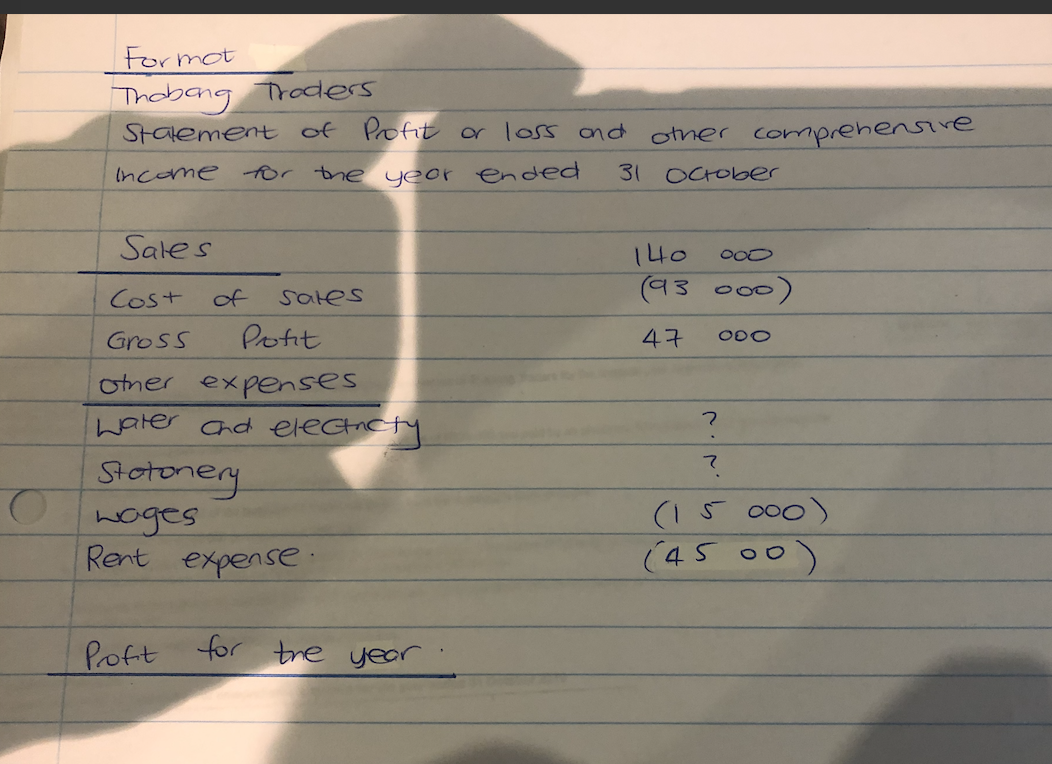 Format
Thabang Traders
Statement of Profit or loss and other comprehensive
Income for the year ended 31 October
Sales 140 000
Cost of sales (93 000)
Gross Profit 47 000
other expenses
Water and electricty ?
Stationery ?
wages (15 000)
Rent expense. (45 00)
Profit for the year.